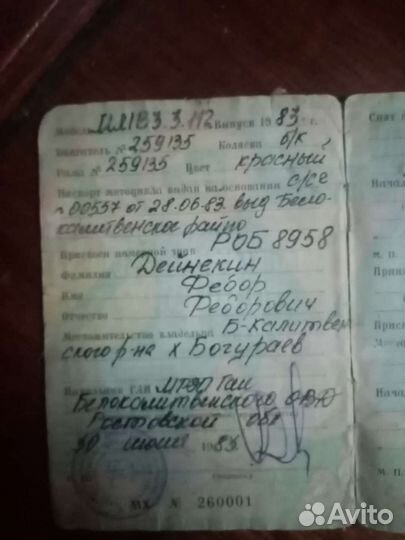 Модель ММВЗ 3.112 Выпуск 1983 г.
Двигатель № 259135 Коляска б/к
Рама № 259135 Цвет красный
Паспорт мотоцикла выдан на основании с/се
00557 от 28.06.83. выд Бело-
калитвенское райпо
Присвоен номерной знак РОБ 8958
Фамилия Дейнекин
Имя Федор
Отчество Федорович
Местожительство владельца Б-Калитвен
ского р-на х Богураев
Начальник ГАИ МРЭО ГАИ
Белокалитвенского ОВД
Ростовской обл
30 июня 1983г.
М. П.
МХ № 260001
М. П.
Avito